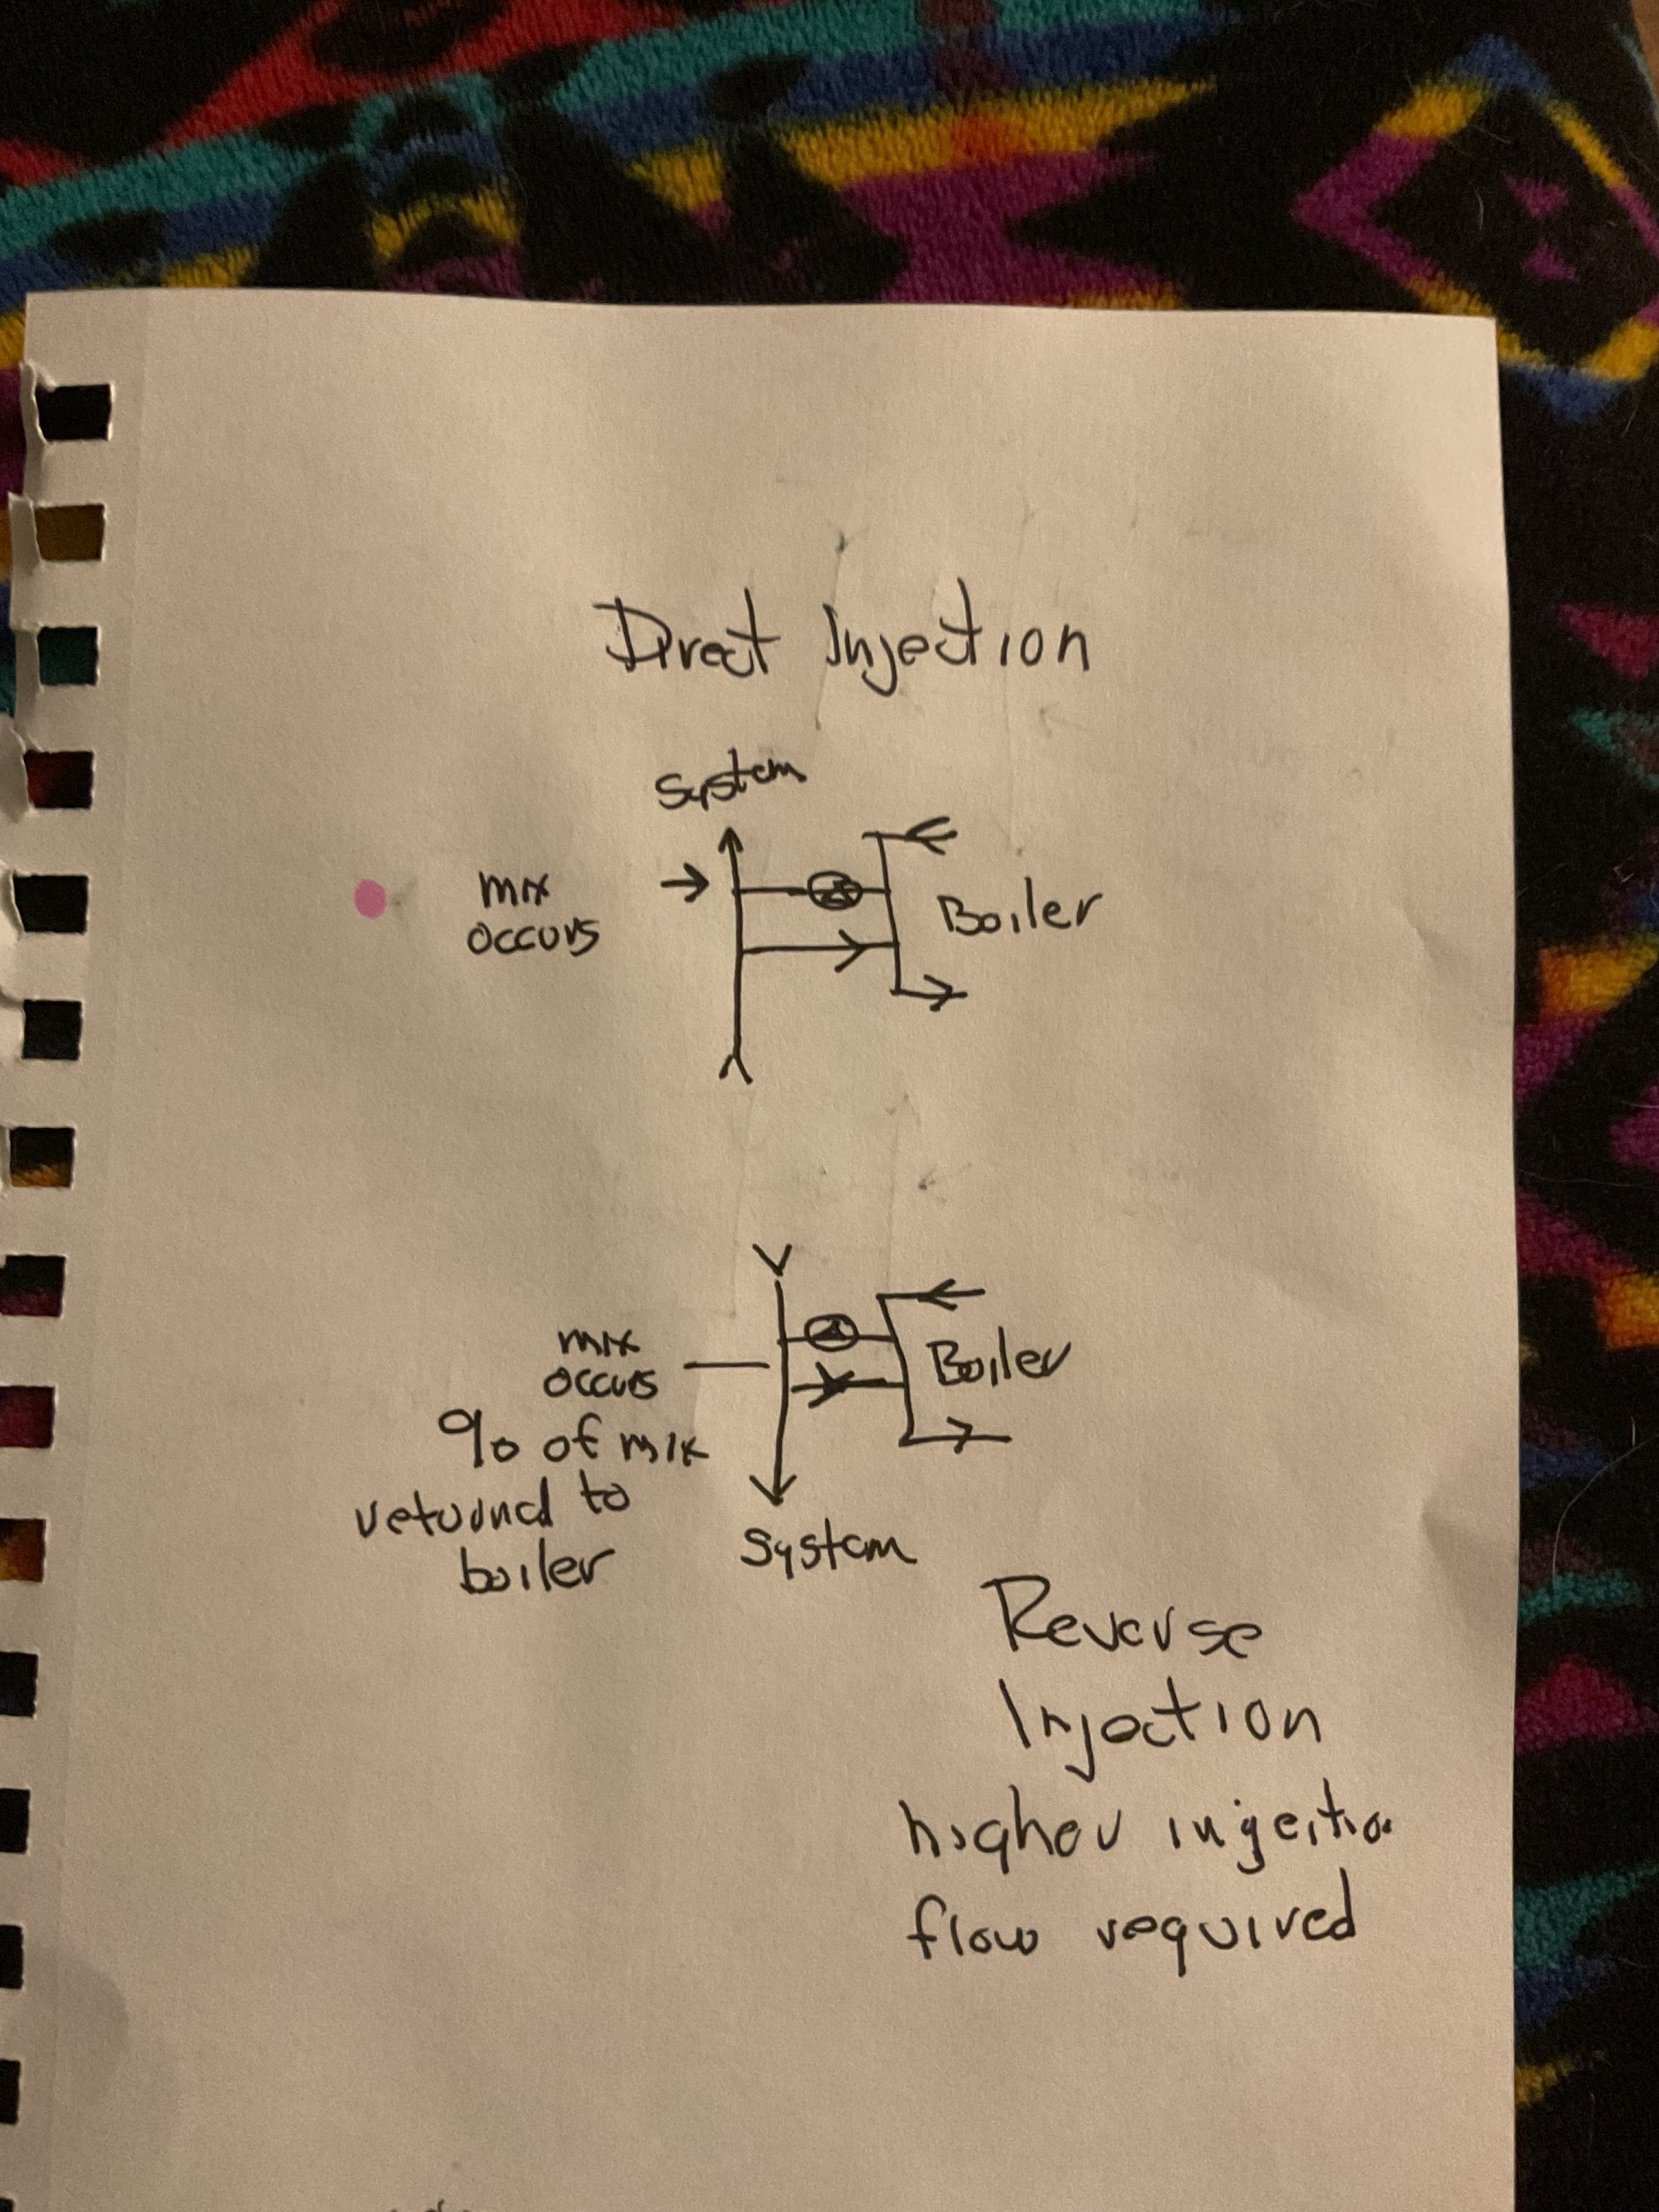 Direct Injection
System
mix
occurs
Boiler
mix
occurs
Boiler
% of mix
returnd to
boiler
System
Reverse
Injection
higher injectio
flow required